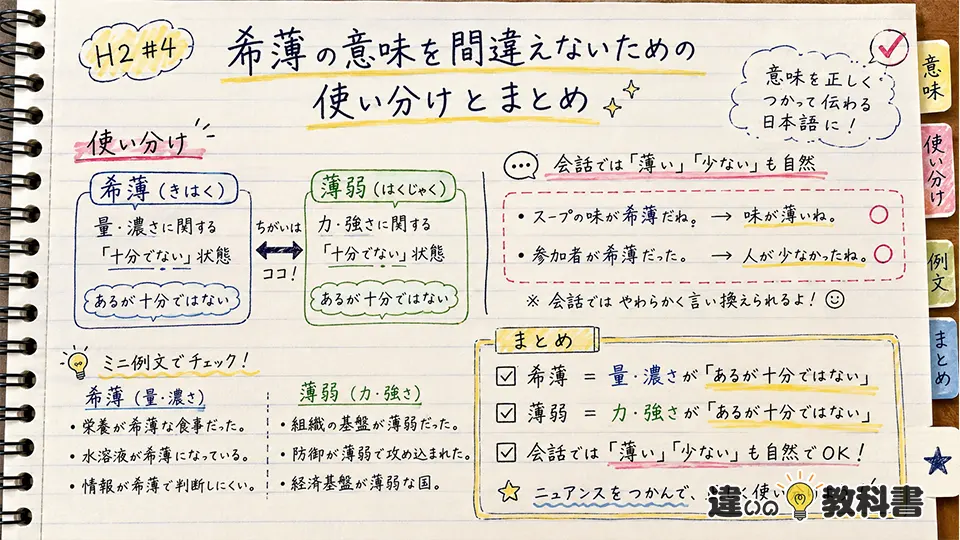 H2 #4
希薄の意味を間違えないための
使い分けとまとめ
意味を正しく
つかって伝わる
日本語に!
意味
使い分け
例文
まとめ
使い分け
希薄(きはく)
量・濃さに関する
「十分でない」状態
あるが十分ではない
ちがいは
ココ!
薄弱(はくじゃく)
力・強さに関する
「十分でない」状態
あるが十分ではない
会話では「薄い」「少ない」も自然
・スープの味が希薄だね。 → 味が薄いね。 ○
・参加者が希薄だった。 → 人が少なかったね。 ○
※ 会話では やわらかく言い換えられるよ!
ミニ例文でチェック!
希薄(量・濃さ)
・栄養が希薄な食事だった。
・水溶液が希薄になっている。
・情報が希薄で判断しにくい。
薄弱(力・強さ)
・組織の基盤が薄弱だった。
・防御が薄弱で攻め込まれた。
・経済基盤が薄弱な国。
まとめ
希薄 = 量・濃さが「あるが十分ではない」
薄弱 = 力・強さが「あるが十分ではない」
会話では「薄い」「少ない」も自然でOK!
ニュアンスをつかんで、
く使い
違いの教科書